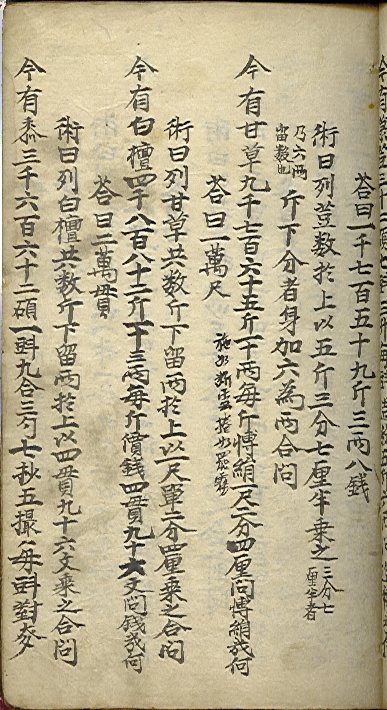 荅曰一千七百五十九斤三两八錢
術曰列荳數於上以五斤三分七厘半乘之三分七厘半者
乃六两留數也斤下分者身加六為两合問
今有甘草九千七百六十五斤十两每斤愽絹一尺二分四厘問愽絹㡬何
荅曰一萬尺
術曰列甘草共數斤下留两於上以一尺單二分四厘乘之合問
今有白檀四千八百八十二斤十三两每斤價錢四貫九十六文問錢㡬何
荅曰二萬貫
術曰列白檀共數斤下留两於上以四貫九十六文乘之合問
今有黍三千六百六十二碩一㪷九合三勺七秋五撮每㪷對麥